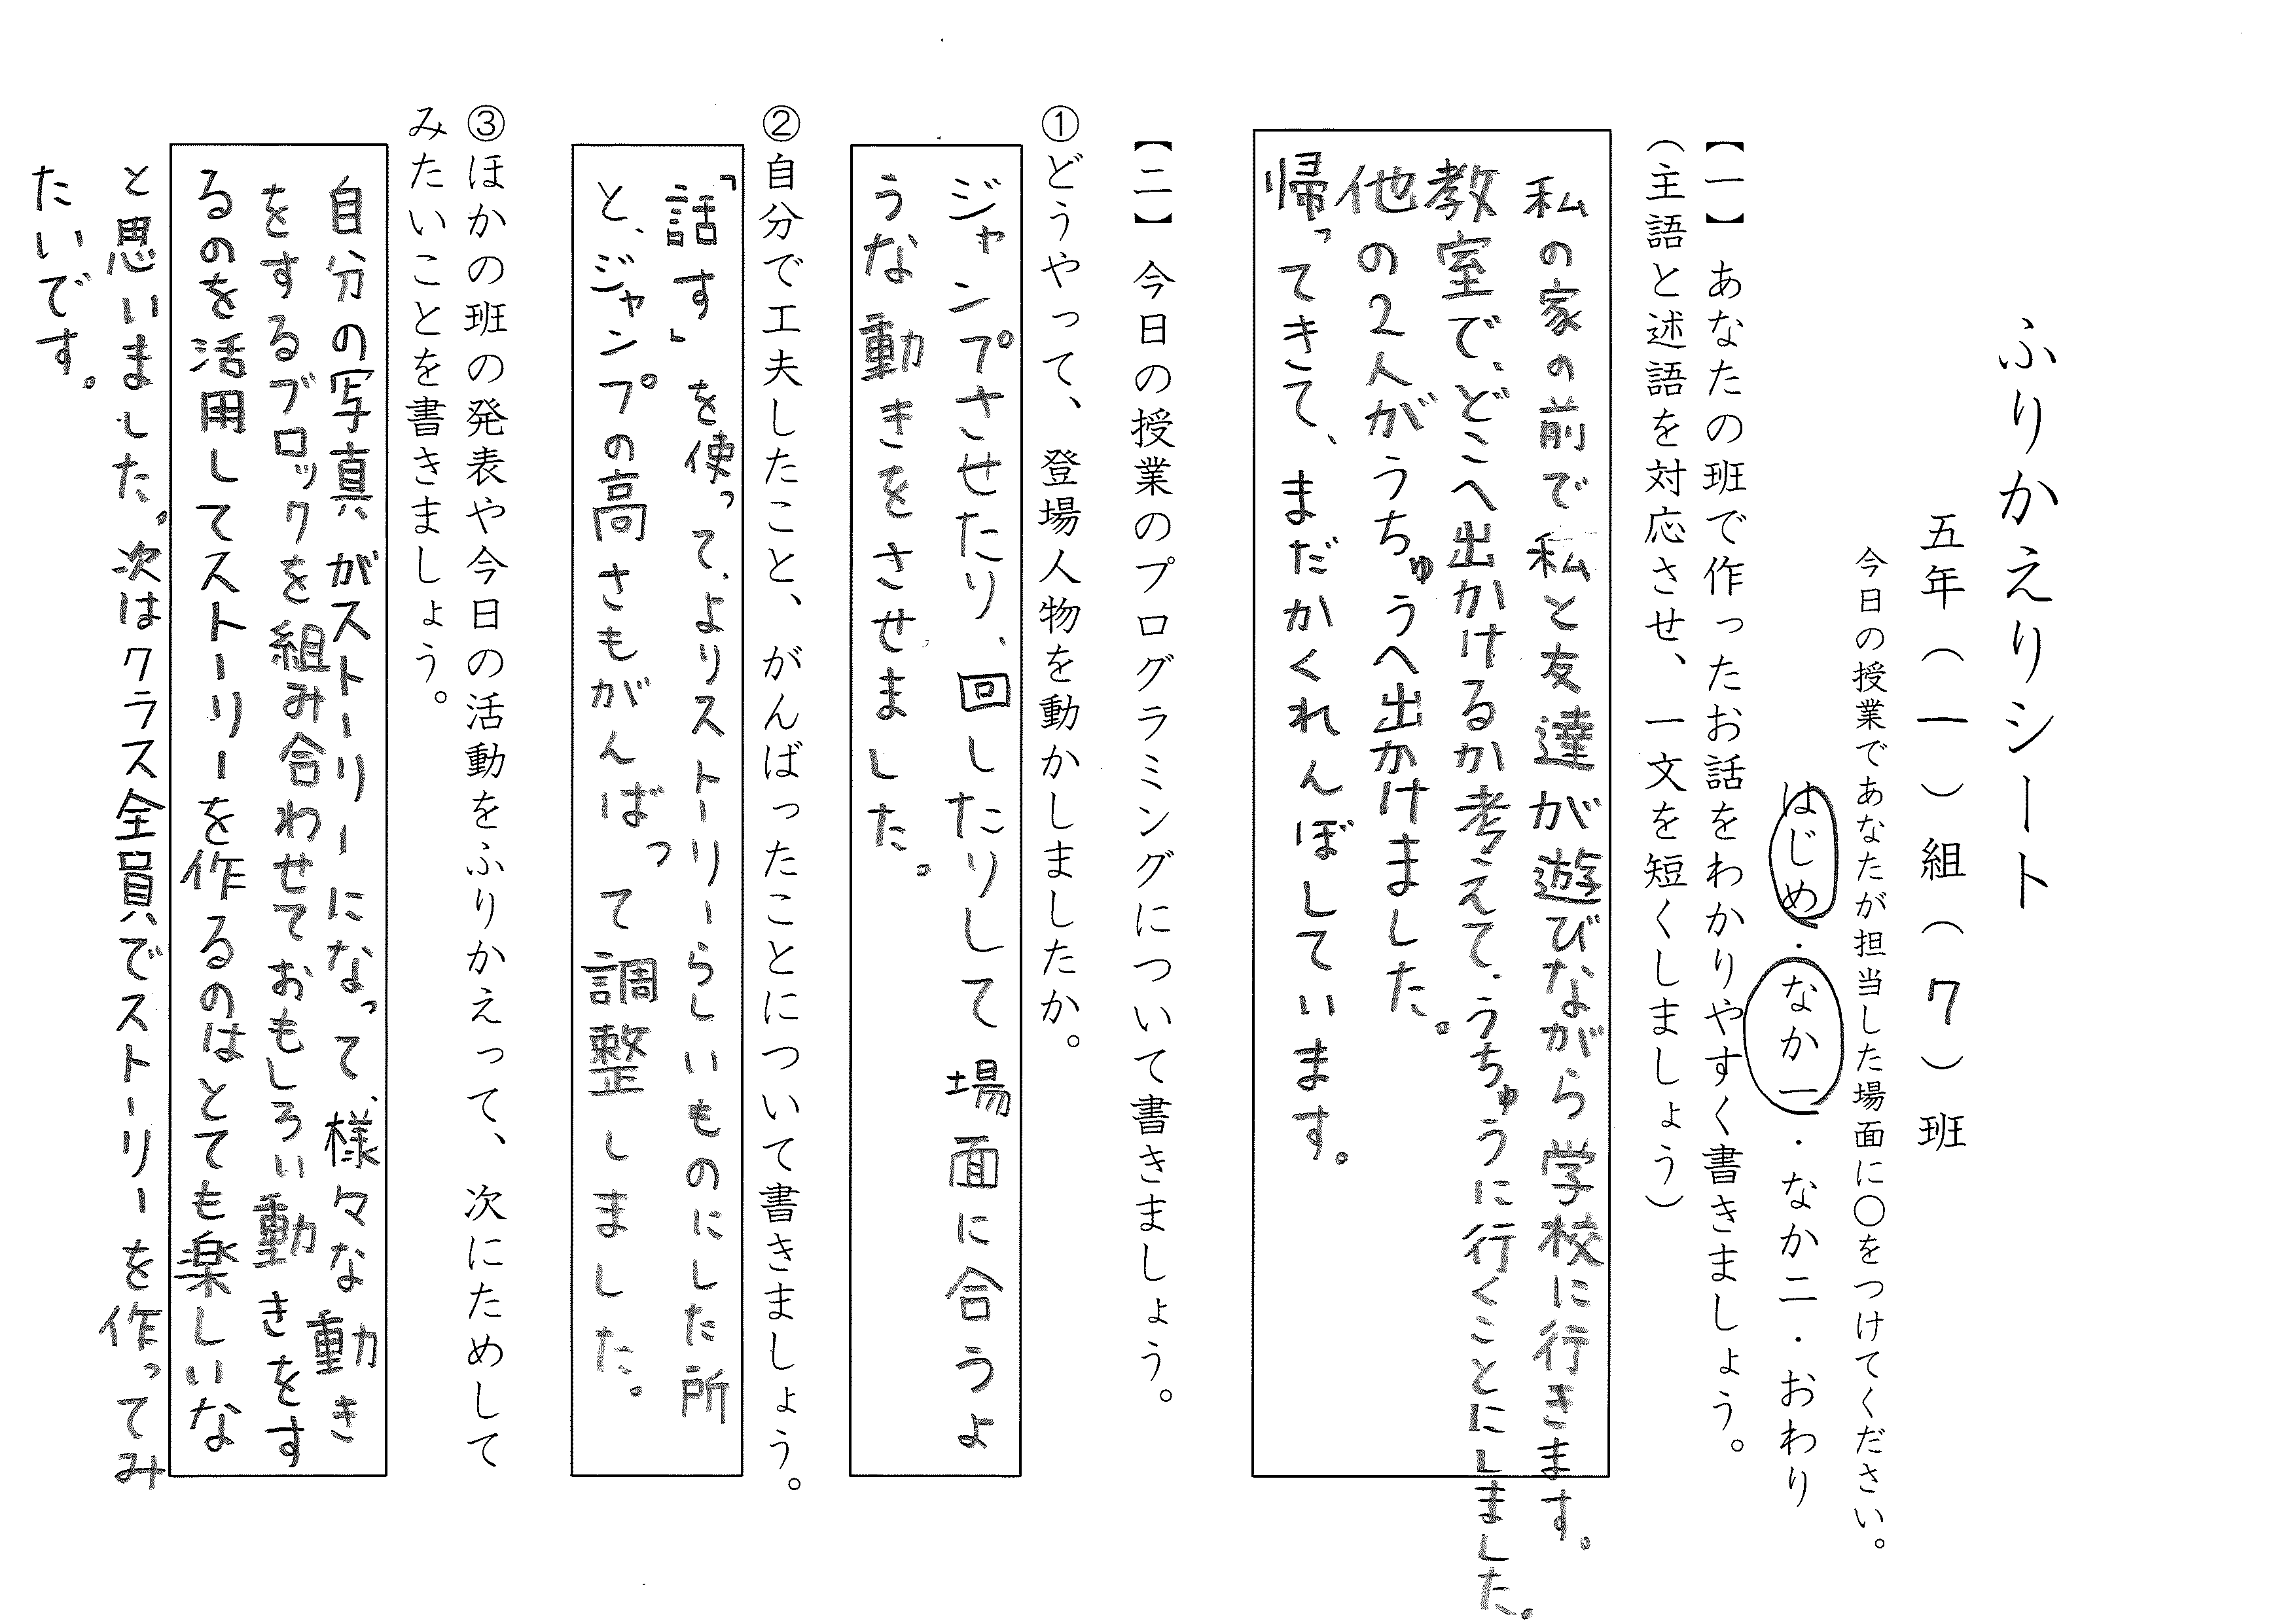 ふりかえりシート
五年（一）組（７）班
今日の授業であなたが担当した場面に〇をつけてください。
はじめ・なか一・なか二・おわり
【一】あなたの班で作ったお話をわかりやすく書きましょう。
（主語と述語を対応させ、一文を短くしましょう）
私の家の前で私と友達が遊びながら学校に行きます。
教室で、どこへ出かけるか考えて、うちゅうに行くことにしました。
他の2人がうちゅうへ出かけました。
帰ってきて、まだかくれんぼしています。
【二】今日の授業のプログラミングについて書きましょう。
①どうやって、登場人物を動かしましたか。
ジャンプさせたり、回したりして場面に合うよ
うな動きをさせました。
②自分で工夫したこと、がんばったことについて書きましょう。
「話す」を使って、よりストーリーらしいものにした所
と、ジャンプの高さもがんばって調整しました。
③ほかの班の発表や今日の活動をふりかえって、次にためして
みたいことを書きましょう。
自分の写真がストーリーになって、様々な動き
をするブロックを組み合わせておもしろい動きをす
るのを活用してストーリーを作るのはとても楽しいな
と思いました。次はクラス全員でストーリーを作ってみ
たいです。